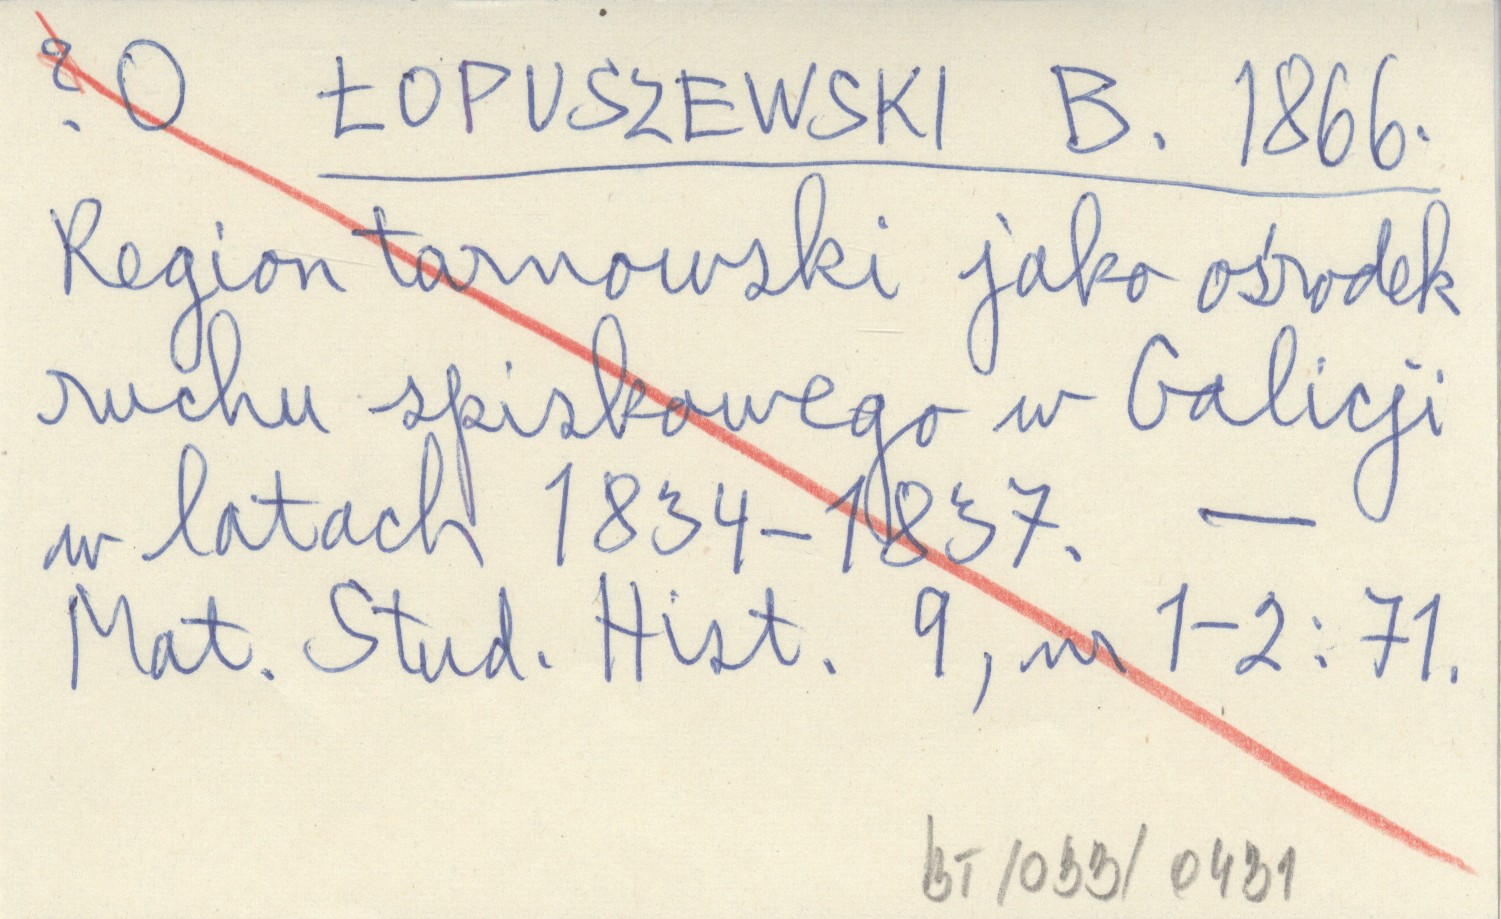 ? O ŁOPUSZEWSKI B. 1866.
Region tarnowski jako ośrodek
ruchu spiskowego w Galicji
w latach 1834-1837. —
Mat. Stud. Hist. 9, nr 1-2: 71.
BT/033/0431